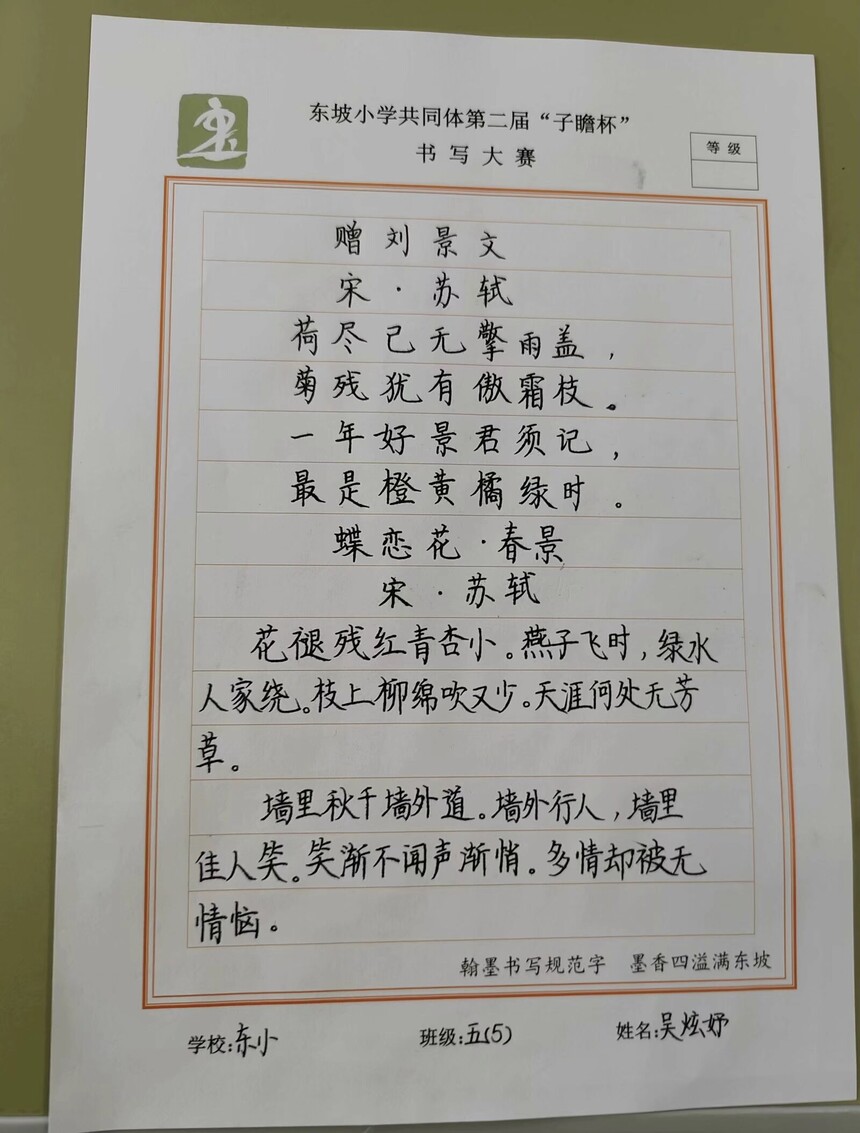 东坡小学共同体第二届“子瞻杯”
书写大赛
等级
赠刘景文
宋·苏轼
荷尽已无擎雨盖，
菊残犹有傲霜枝。
一年好景君须记，
最是橙黄橘绿时。
蝶恋花·春景
宋·苏轼
花褪残红青杏小。燕子飞时，绿水
人家绕。枝上柳绵吹又少。天涯何处无芳
草。
墙里秋千墙外道。墙外行人，墙里
佳人笑。笑渐不闻声渐悄。多情却被无
情恼。
翰墨书写规范字 墨香四溢满东坡
学校:东小 班级:五(5) 姓名:吴炫妤